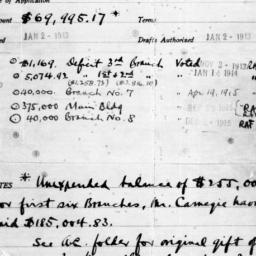 of Application
ount $69,995.17* Terms
JAN 2 - 1913 Drafts Authorized JAN 2 - 1913
$1,169. Deficit 3rd Branch Voted JAN 2 - 1913 RA
5,074.42 " 1st & 2nd " " JAN 16 1914
40,000 Branch No. 7 " Apr. 19, 1915
375,000 Main Bldg "
40,000 Branch No. 8 " 1915 RAF
TES * Unexpended balance of $255,00
or first six Branches, Mr. Carnegie havi
aid $185,004.83.
See A.C. folder for original gift of